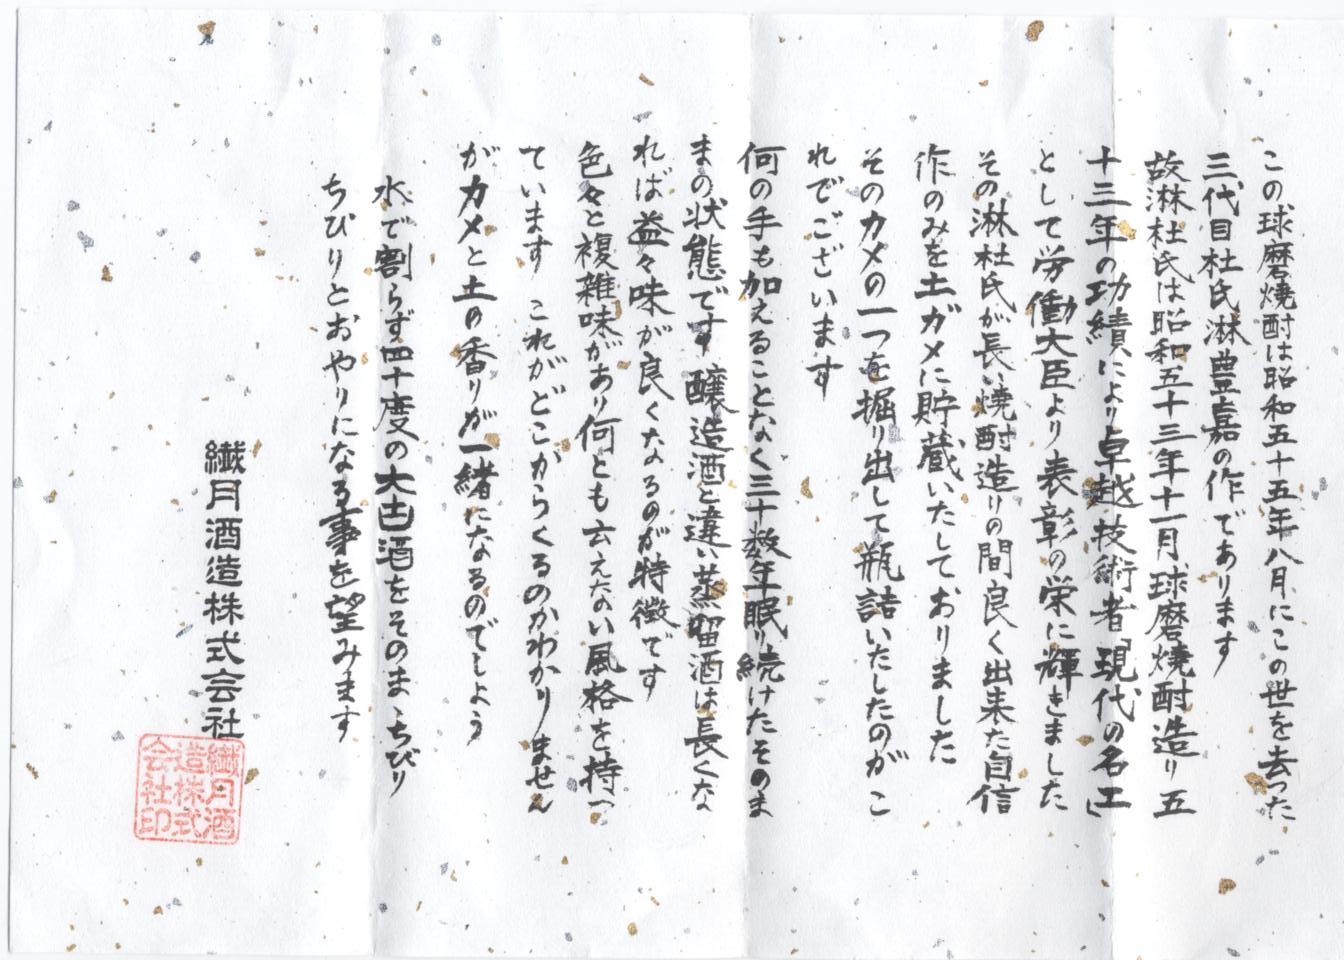 この球磨焼酎は昭和五十五年八月にこの世を去った
三代目杜氏淋豊嘉の作であります
故淋杜氏は昭和五十三年十一月球磨焼酎造り五
十三年の功績により卓越技術者「現代の名工」
として労働大臣より表彰の栄に輝きました
その淋杜氏が長い焼酎造りの間良く出来た自信
作のみを土ガメに貯蔵いたしておりました
そのカメの一つを掘り出して瓶詰いたしたのがこ
れでございます
何の手も加えることなく三十数年眠り続けたそのま
まの状態です 醸造酒と違い蒸留酒は長くな
れば益々味が良くなるのが特徴です
色々と複雑味があり何とも云えない風格を持っ
ています これがどこからくるのかわかりません
がカメと土の香りが一緒になるのでしょう
水で割らず四十度の大古酒をそのまゝちびり
ちびりとおやりになる事を望みます
繊月酒造株式会社
繊月酒
造株式
会社印